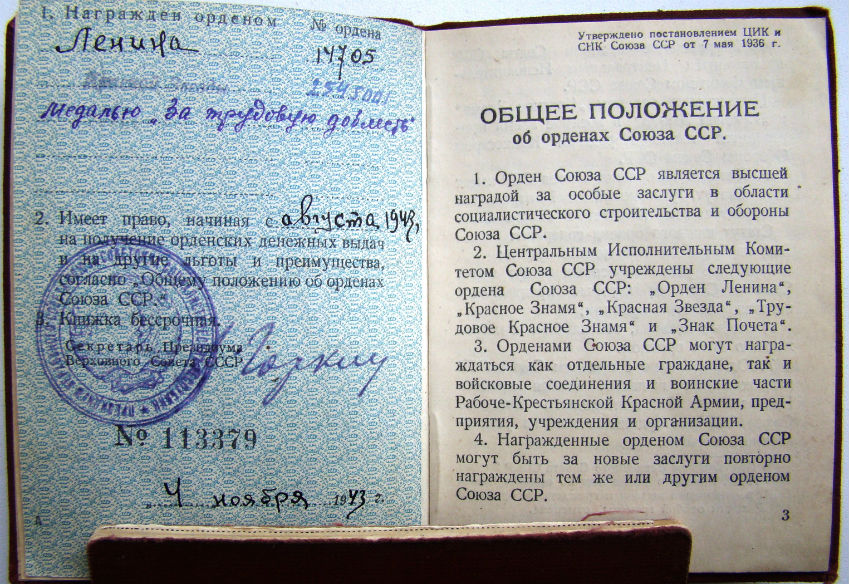 1. Награжден орденом № ордена
Ленина 14705
Красной Звезды 254500
Медалью „За трудовую доблесть“
2. Имеет право, начиная с августа 1943 г.
на получение орденских денежных выдач
и на другие льготы и преимущества,
согласно „Общему положению об орденах
Союза ССР.“
3. Книжка бессрочная.
Секретарь Президиума
Верховного Совета СССР
Горкин
№ 113379
„4“ ноября 1943 г.
Утверждено постановлением ЦИК и
СНК Союза ССР от 7 мая 1936 г.
ОБЩЕЕ ПОЛОЖЕНИЕ
об орденах Союза ССР.
1. Орден Союза ССР является высшей
наградой за особые заслуги в области
социалистического строительства и обороны
Союза ССР.
2. Центральным Исполнительным Коми-
тетом Союза ССР учреждены следующие
ордена Союза ССР: „Орден Ленина“,
„Красное Знамя“, „Красная Звезда“, „Тру-
довое Красное Знамя“ и „Знак Почета“.
3. Орденами Союза ССР могут награ-
ждаться как отдельные граждане, так и
войсковые соединения и воинские части
Рабоче-Крестьянской Красной Армии, пред-
приятия, учреждения и организации.
4. Награжденные орденом Союза ССР
могут быть за новые заслуги повторно
награждены тем же или другим орденом
Союза ССР.
3